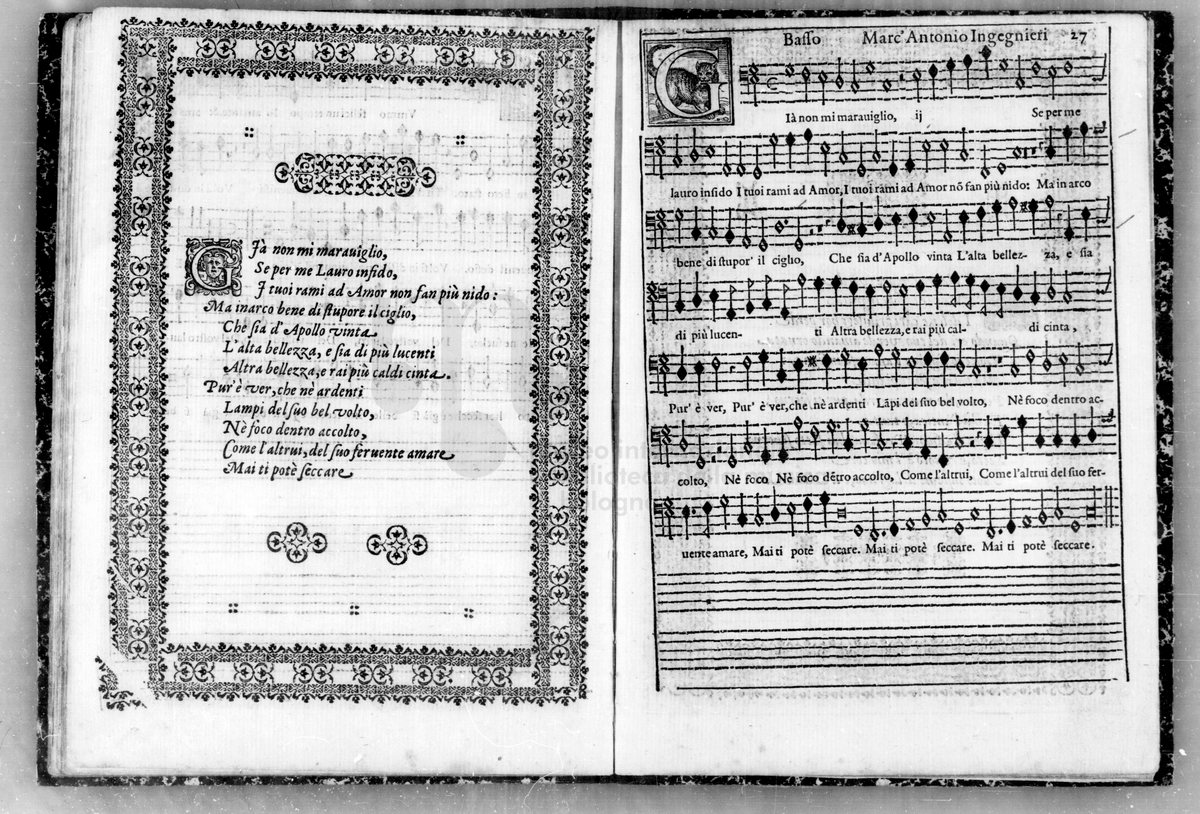 Già non mi marauiglio,
Se per me Lauro infido,
I tuoi rami ad Amor non fan più nido:
Ma inarco bene di stupore il ciglio,
Che sia d'Apollo vinta
L'alta bellezza, e sia di più lucenti
Altra bellezza, e rai più caldi cinta.
Pur' è ver, che nè ardenti
Lampi del suo bel volto,
Nè foco dentro accolto,
Come l'altrui, del suo feruente amare
Mai ti potè seccare
Basso Marc' Antonio Ingegnieri 27
Già non mi marauiglio, ij Se per me
lauro infido I tuoi rami ad Amor, I tuoi rami ad Amor nõ fan più nido: Ma in arco
bene di stupor' il ciglio, Che sia d'Apollo vinta L'alta bellez- za, e sia
di più lucen- ti Altra bellezza, e rai più cal- di cinta,
Pur' è ver, Pur' è ver, che nè ardenti Lãpi del suo bel volto, Nè foco dentro ac-
colto, Nè foco Nè foco dẽtro accolto, Come l'altrui, Come l'altrui del suo fer-
uente amare, Mai ti potè seccare. Mai ti potè seccare. Mai ti potè seccare.